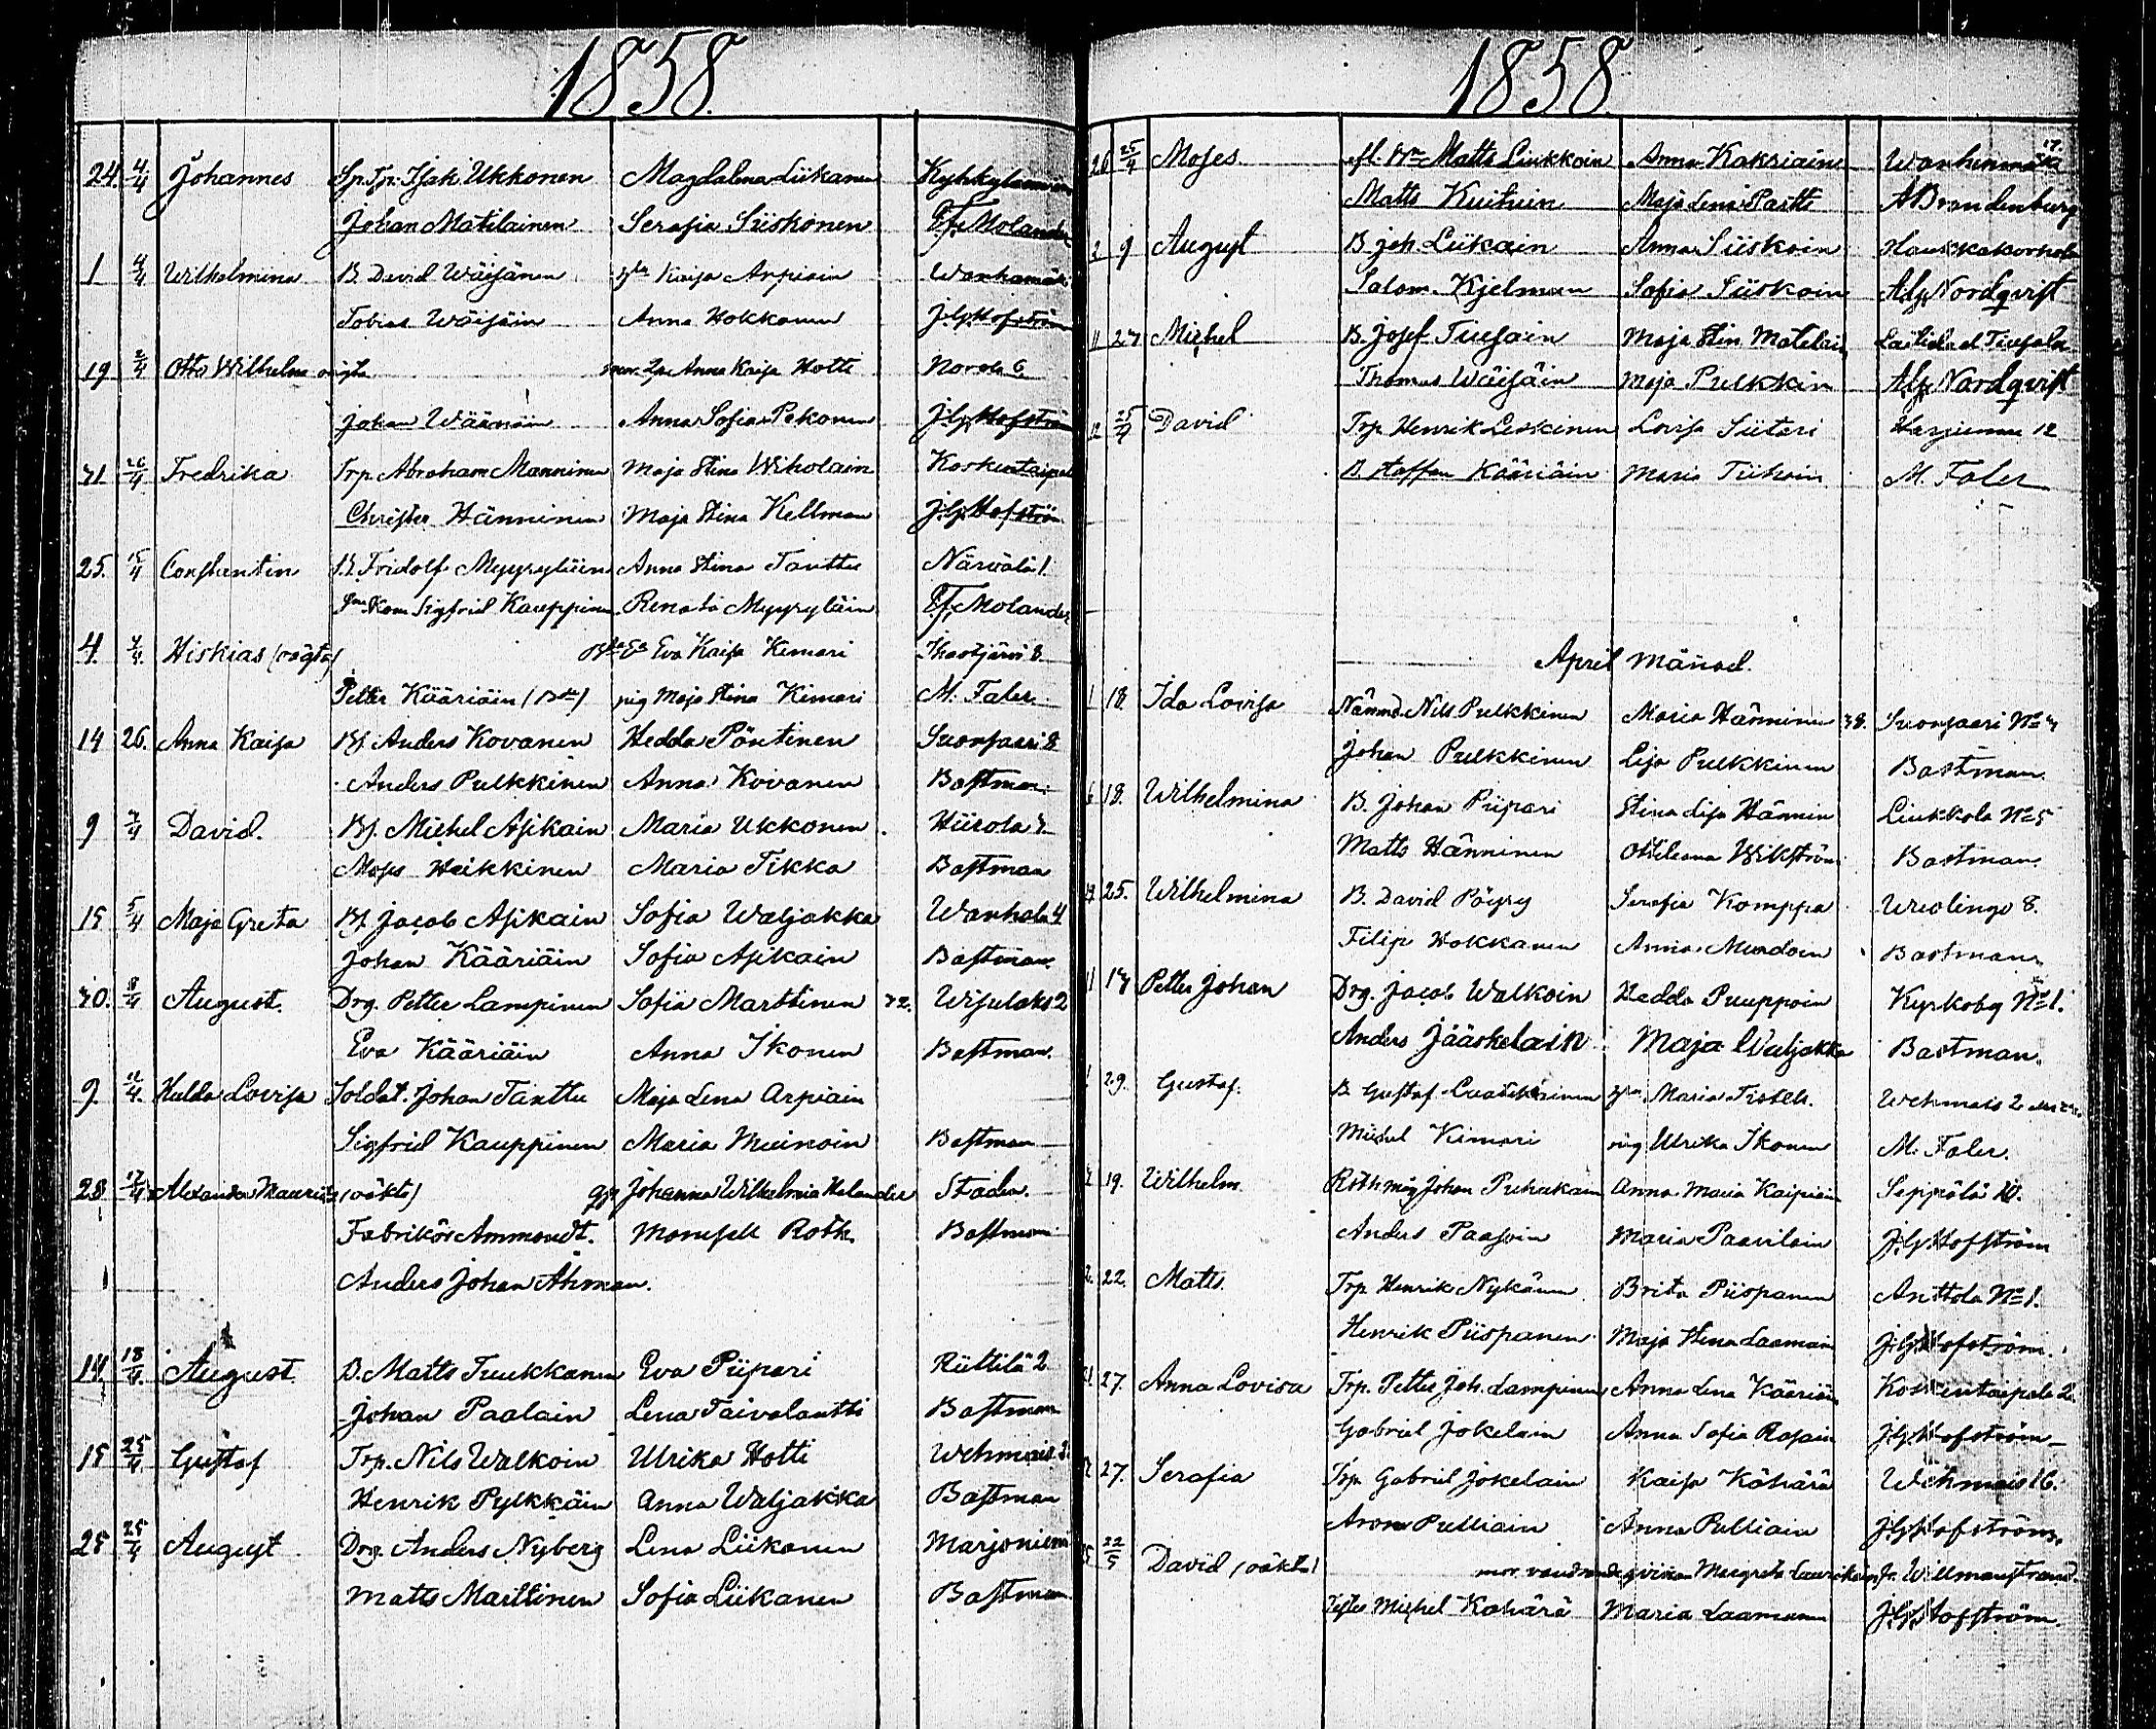 1858.
24. 4/4 Johannes Sp. Tp. Isak Ukkonen Magdalena Liikanen
Johan Matilainen Serafia Siiskonen E. F. Molander
1 4/4 Wilhelmina B. David Wäisänen Kaisa Arpiain Wanhamäki
Tobias Wäisäin Anna Hokkanen J. G. Hofström
19 2/4 Otto Wilhelm oägta Anna Kaisa Hotti Norola 6
Johan Wäänäin Anna Sofia Pekonen J. G. Hofström
31 26/4 Fredrika Trp. Abraham Manninen Maja Stina Wiholain Koskentaipale
Christer Hänninen Maja Stina Kellman J. G. Hofström
25. 15/4 Constantin B. Fridolf Myyryläin Anna Stina Tanttu Närvälä 1.
Sigfrid Kauppinen Renata Myyryläin E. F. Molander
4. 7/4. Hiskias (oägta) Eva Kaisa Kimari Ihastjärvi 8
Petter Kääriäin pig Maja Stina Kimari M. Faler.
14 26. Anna Kaisa Bf. Anders Kovanen Hedda Pöntinen Suonsaari 8
Anders Pulkkinen Anna Koivanen Bastman
9 7/4 David. Bf. Michel Asikain Maria Ukkonen Hiirola 7
Moses Heikkinen Maria Tikka Bastman
15 5/4 Maja Greta Bf. Jacob Asikain Sofia Waljakka Wanhala 4
Johan Kääriäin Sofia Asikain Bastman
30. 8/4 August. Drg. Petter Lampinen Sofia Marttinen 32. Wisulaks 2
Eva Kääriäin Anna Ikonen Bastman.
9. 11/4. Hulda Lovisa Soldat. Johan Tanttu Maja Lena Arpiain
Sigfrid Kauppinen Maria Muinoin Bastman
28 17/4 Alexander Mauritz (oäkta) Johanna Wilhelmia Helander Staden.
Fabrikör Ammondt. Mamsell Roth. Bastman
Anders Johan Åhman.
14. 18/4. August. B. Matts Tuukkanen Eva Piipari Riittilä 2
Johan Paalain Lena Taivalantti Bastman
15 25/4 Gustaf Trp. Nils Walkoin Ulrika Hotti Wehmais 3.
Henrik Pylkkäin Anna Waljakka Bastman
25 25/4 August Drg. Anders Nyberg Lena Liikanen Marjoniemi
Matts Marttinen Sofia Liikanen Bastman
1858.
17.
26 25/4 Moses Matts Liukkoin Anna Kakriain Wanhanmäki
Matts Kuituin Maja Lena Partti A Brandenburg
9 August B. Joh. Liikain Anna Siiskoin Haukkakorhola
Salom. Kjelman Sofia Siiskoin Alf. Nordqvist
11 27 Michel B. Josef Tuusain Maja Stin Matilain
Thomas Wäisäin Maja Pulkkin Alf. Nordqvist
12 25/4 David Trp. Henrik Leskinen Lovisa Siitari Harjumaa 12
B. Staffan Kääriäin Maria Tiihoin M. Faler
April månad.
1 18. Ida Lovisa Nämnd. Nils Pulkkinen Maria Hänninen 38. Suonsaari No 7
Johan Pulkkinen Lisa Pulkkinen Bastman.
6 18. Wilhelmina B. Johan Piipari Stina Lisa Hännin Liukkola No 5
Matts Hänninen Wikström Bastman.
25. Wilhelmina B. David Pöyry Serafia Komppa 8.
Filip Hokkanen Anna Bastman.
11 17 Petter Johan Drg. Jacob Walkoin Hedda Puuppoin Kyrkoby No 1.
Anders Jääskelain Maja Waljakka Bastman.
29. Gustaf. B. Gustaf Maria Wehmais 2
Michel Kimari pig Ulrika Ikonen M. Faler.
19. Wilhelm Johan Puhakain Anna Maria Kaipiain Seppälä 10.
Anders Paasoin Maria Paavilain J. G. Hofström
22. Matts. Trp. Henrik Nykänen Brita Piispanen Anttola No 1.
Henrik Piispanen Maja Stina Laamain J. G. Hofström.
27. Anna Lovisa Trp. Petter Joh. Lampinen Anna Lena Kääriäin Koskentaipale 2.
Gabriel Jokelain Anna Sofia J. G. Hofström
27. Serafia Trp. Gabriel Jokelain Kaisa Kähärä Wehmais 16.
Aron Pulliain Anna Pulliain J. G. Hofström.
22/5 David (oäkta) mor. Margreta Laurikain fr. Willmanstrand.
Michel Kähärä Maria Laamanen J. G. Hofström.